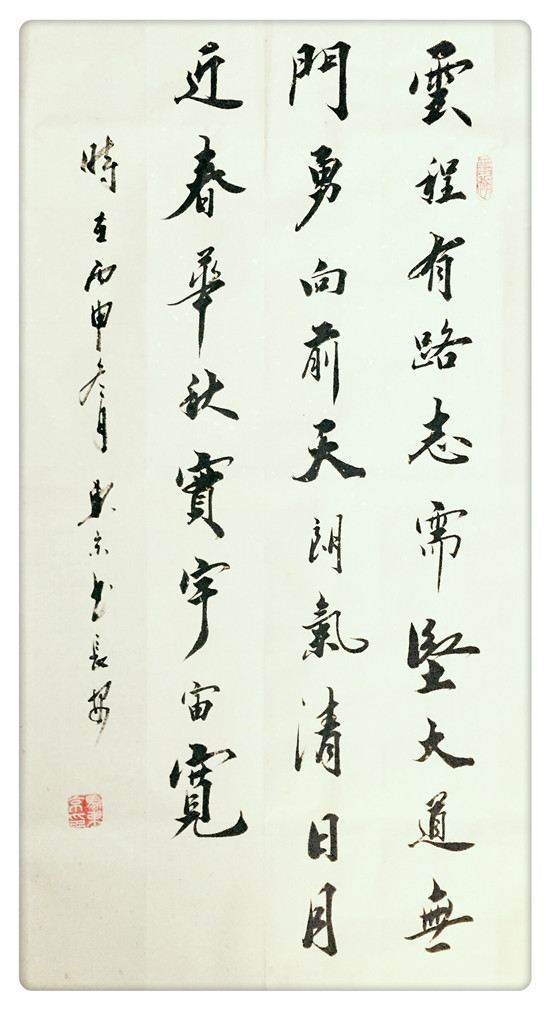 雲程有路志需堅大道無
門勇向前天朗氣清日月
近春華秋實宇宙寬
時在丙申冬月東京書長安